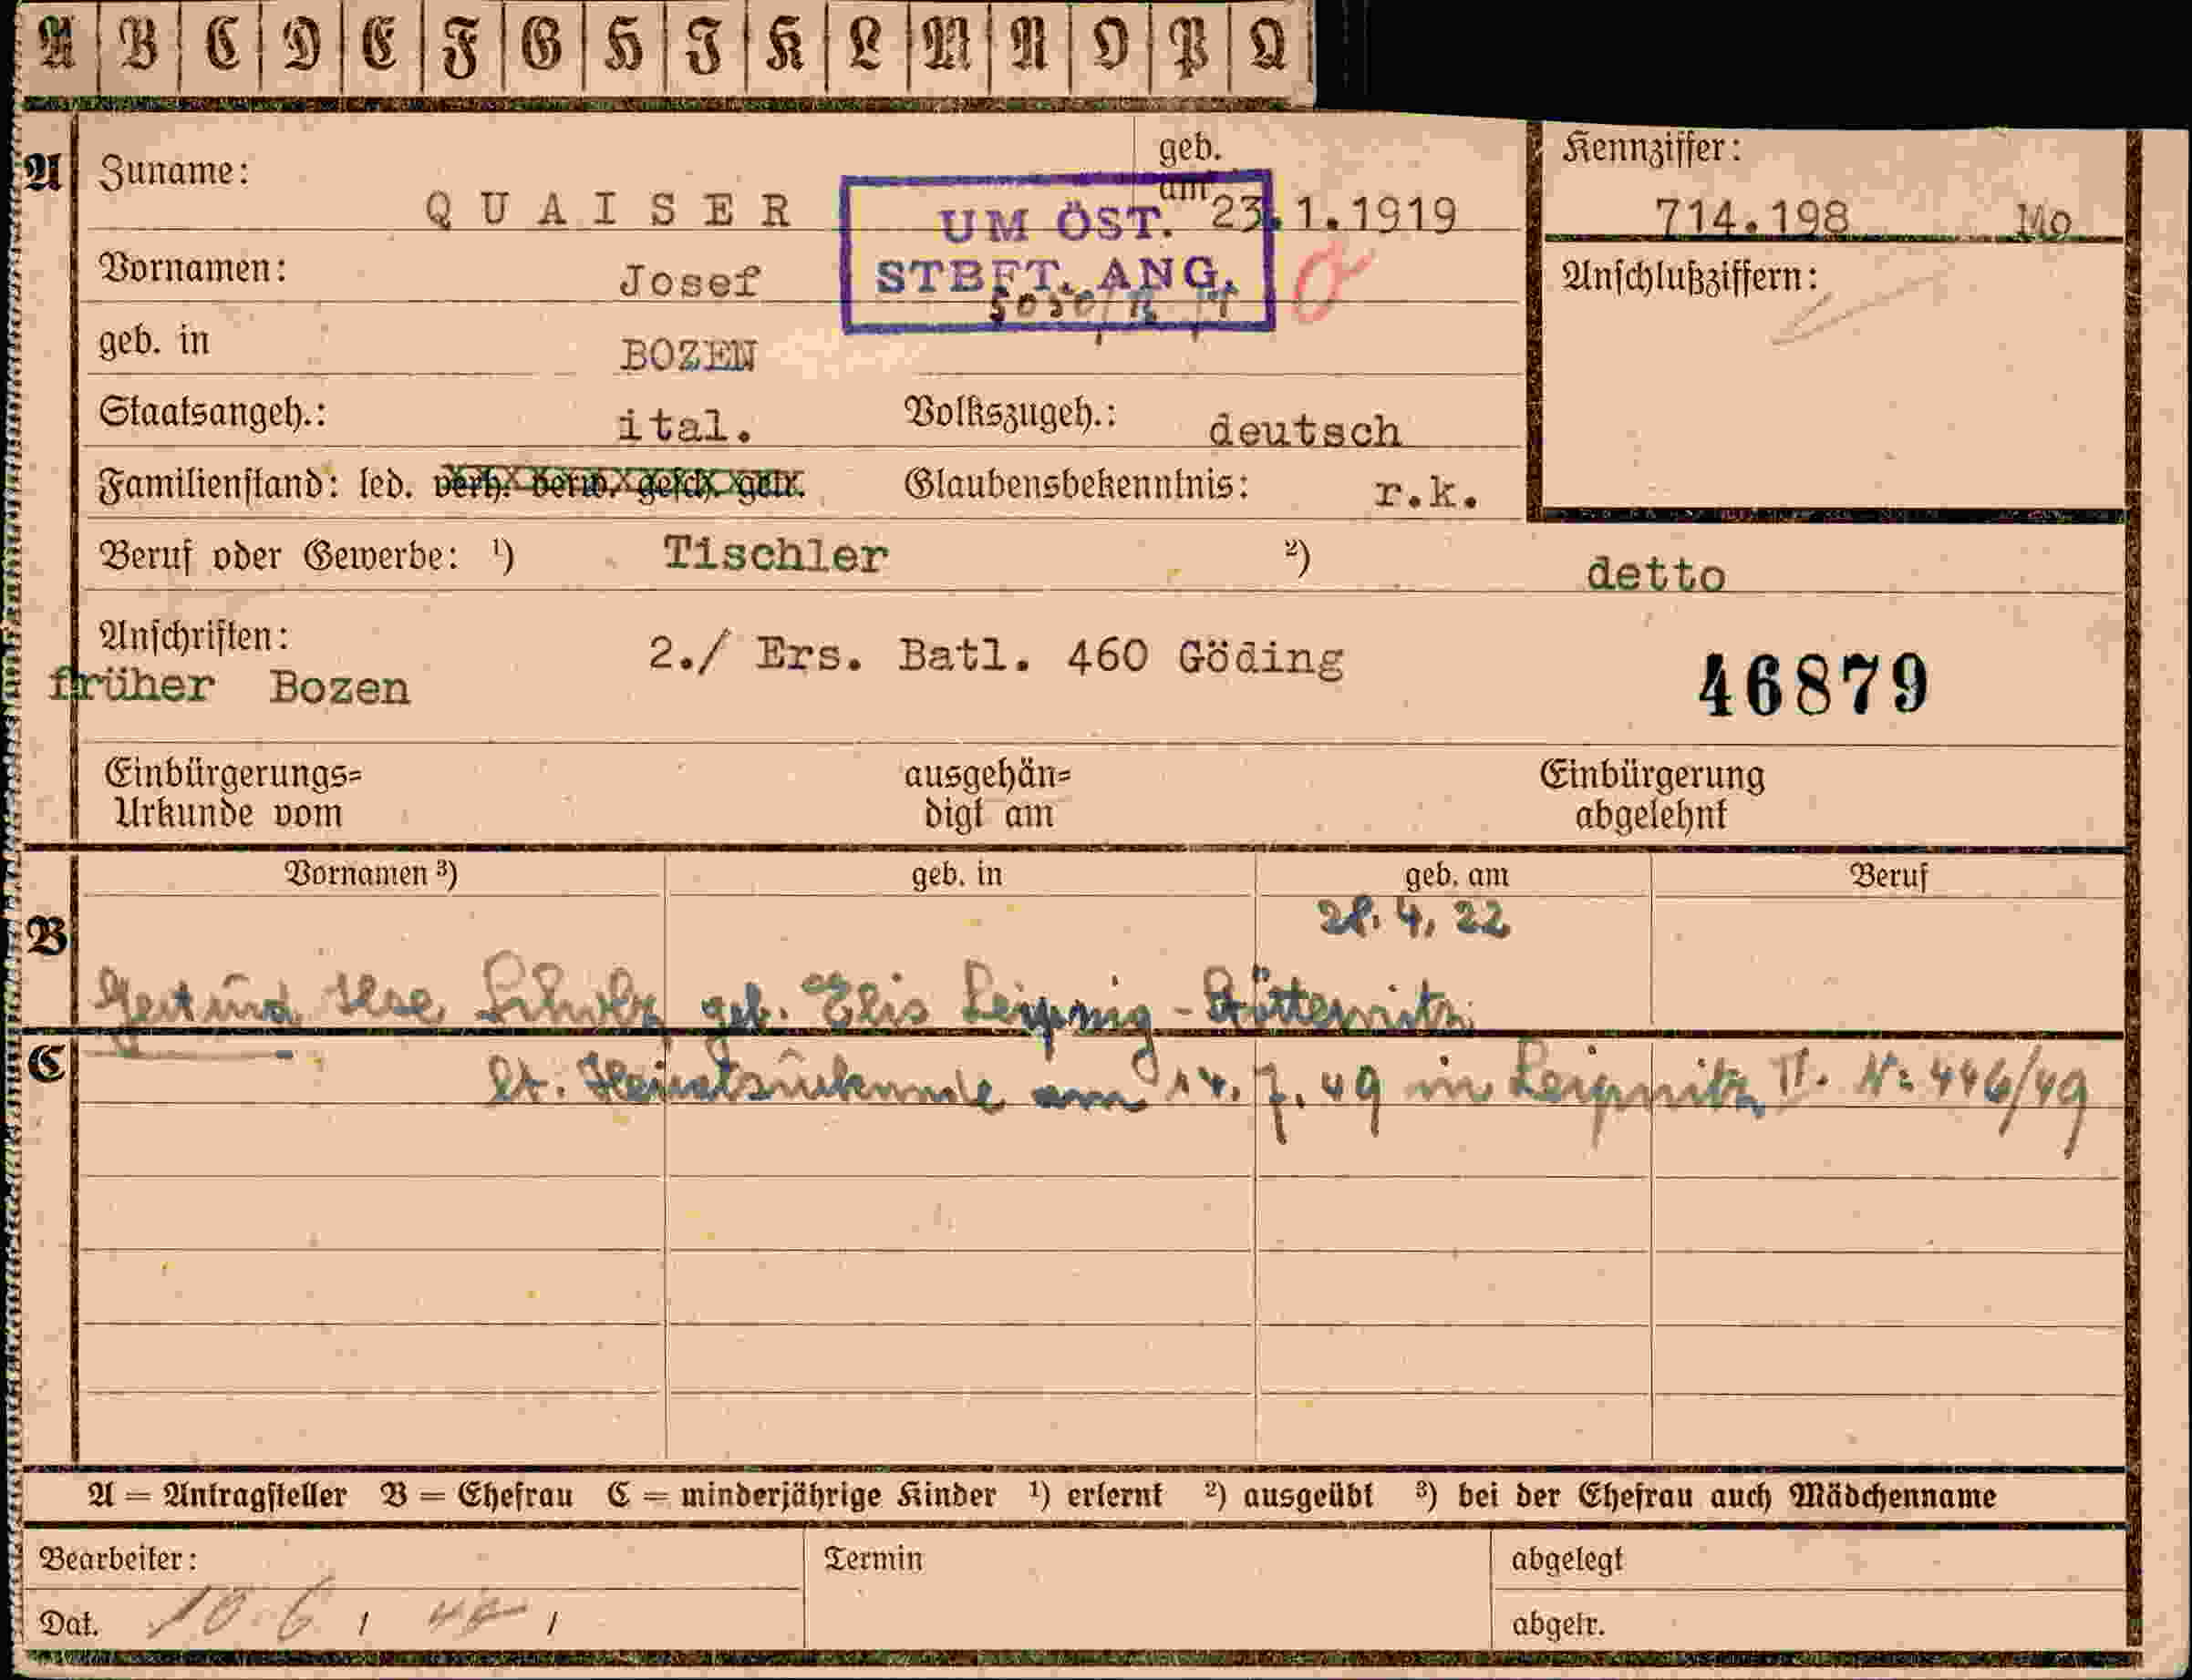 A B C D E F G H I K L M N O P Q
A Zuname: QUAISER geb. am 23.1.1919
Kennziffer: 714.198 Mo
UM ÖST. STBFT. ANG.
Vornamen: Josef
Anschlußziffern:
geb. in BOZEN
Staatsangeh.: ital. Volkszugeh.: deutsch
Familienstand: led. verh. verw. gesch. getr. Glaubensbekenntnis: r.k.
Beruf oder Gewerbe: ¹) Tischler ²) detto
Anschriften: 2./ Ers. Batl. 460 Göding
früher Bozen
46879
Einbürgerungs= ausgehän= Einbürgerung
Urkunde vom digt am abgelehnt
Vornamen ³) geb. in geb. am Beruf
B 28. 4. 22
Ilse Scholz geb. Elis Leipzig - Stötteritz
C lt. Heiratsurkunde am 14. 7. 49 in II. Nr 446/49
A = Antragsteller B = Ehefrau C = minderjährige Kinder ¹) erlernt ²) ausgeübt ³) bei der Ehefrau auch Mädchenname
Bearbeiter: Termin abgelegt
Dat. 10. 6 / / abgetr.